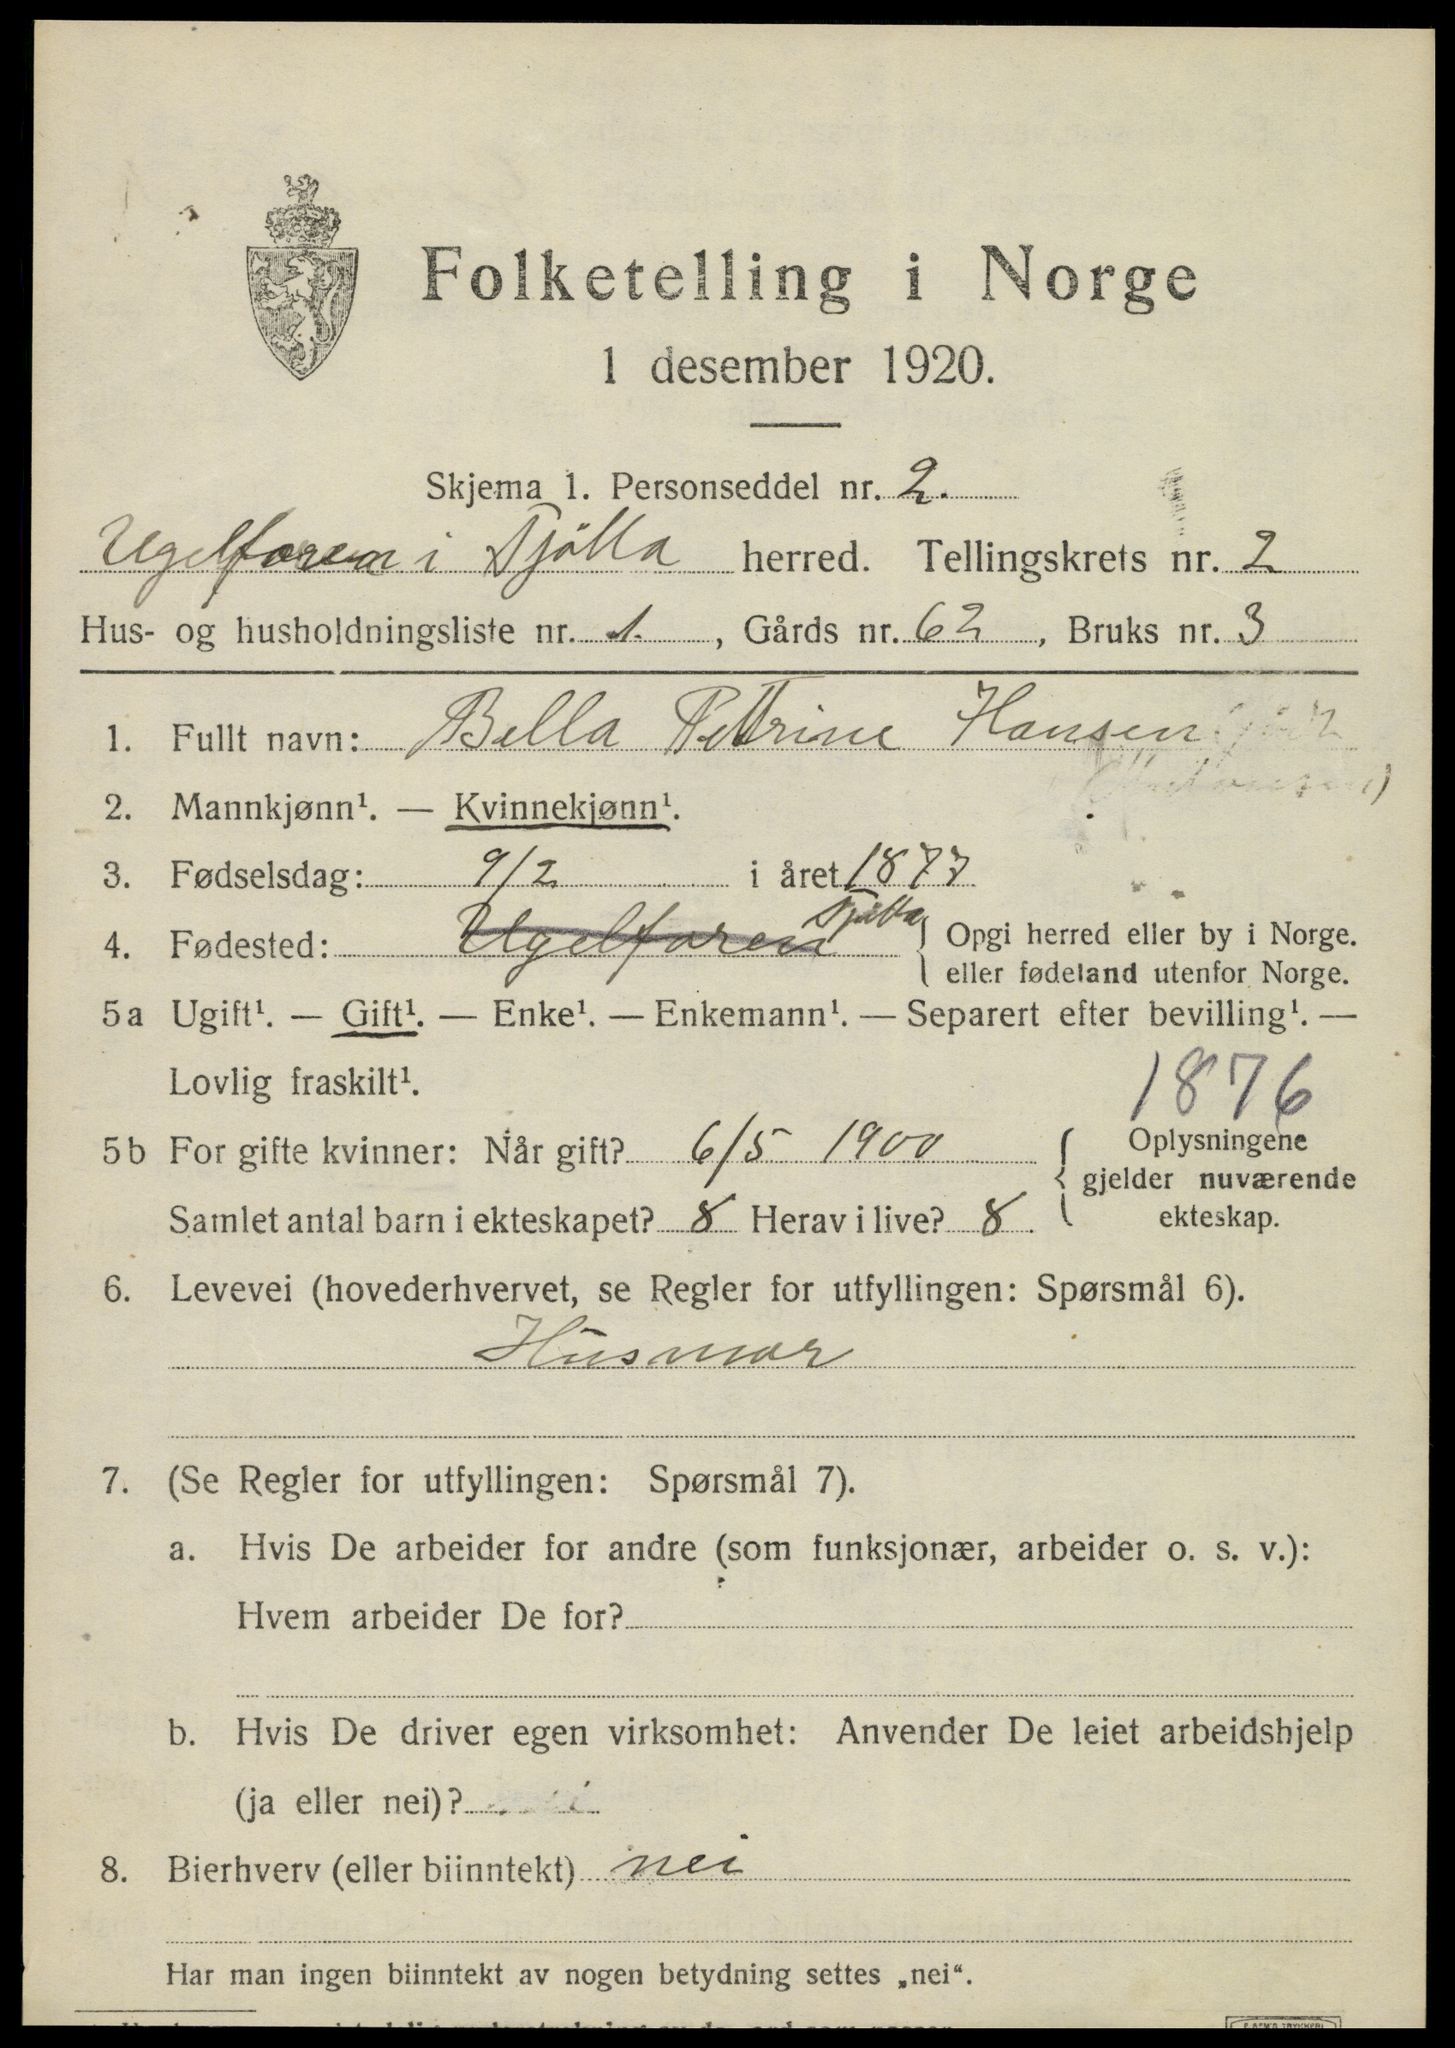 Folketelling i Norge
1 desember 1920.
Skjema 1. Personseddel nr. 2.
Ugelforen i Tjötta herred. Tellingskrets nr. 2
Hus- og husholdningsliste nr. 1. , Gårds nr. 62 , Bruks nr. 3
1. Fullt navn: Bella Petrine Hansen
2. Mannkjønn¹. — Kvinnekjønn¹.
3. Fødselsdag: 9/2 i året 1877
4. Fødested: Ugelforen Tjötta { Opgi herred eller by i Norge.
eller fødeland utenfor Norge.
5a Ugift¹. — Gift¹. — Enke¹. — Enkemann¹. — Separert efter bevilling¹. —
Lovlig fraskilt¹.
1876
5b For gifte kvinner: Når gift? 6/5 1900 { Oplysningene
gjelder nuværende
Samlet antal barn i ekteskapet? 8 Herav i live? 8. ekteskap.
6. Levevei (hovederhvervet, se Regler for utfyllingen: Spørsmål 6).
Husmor
7. (Se Regler for utfyllingen: Spørsmål 7).
a. Hvis De arbeider for andre (som funksjonær, arbeider o. s. v.):
Hvem arbeider De for?
b. Hvis De driver egen virksomhet: Anvender De leiet arbeidshjelp
(ja eller nei)?
8. Bierhverv (eller biinntekt) nei
Har man ingen biinntekt av nogen betydning settes „nei“.